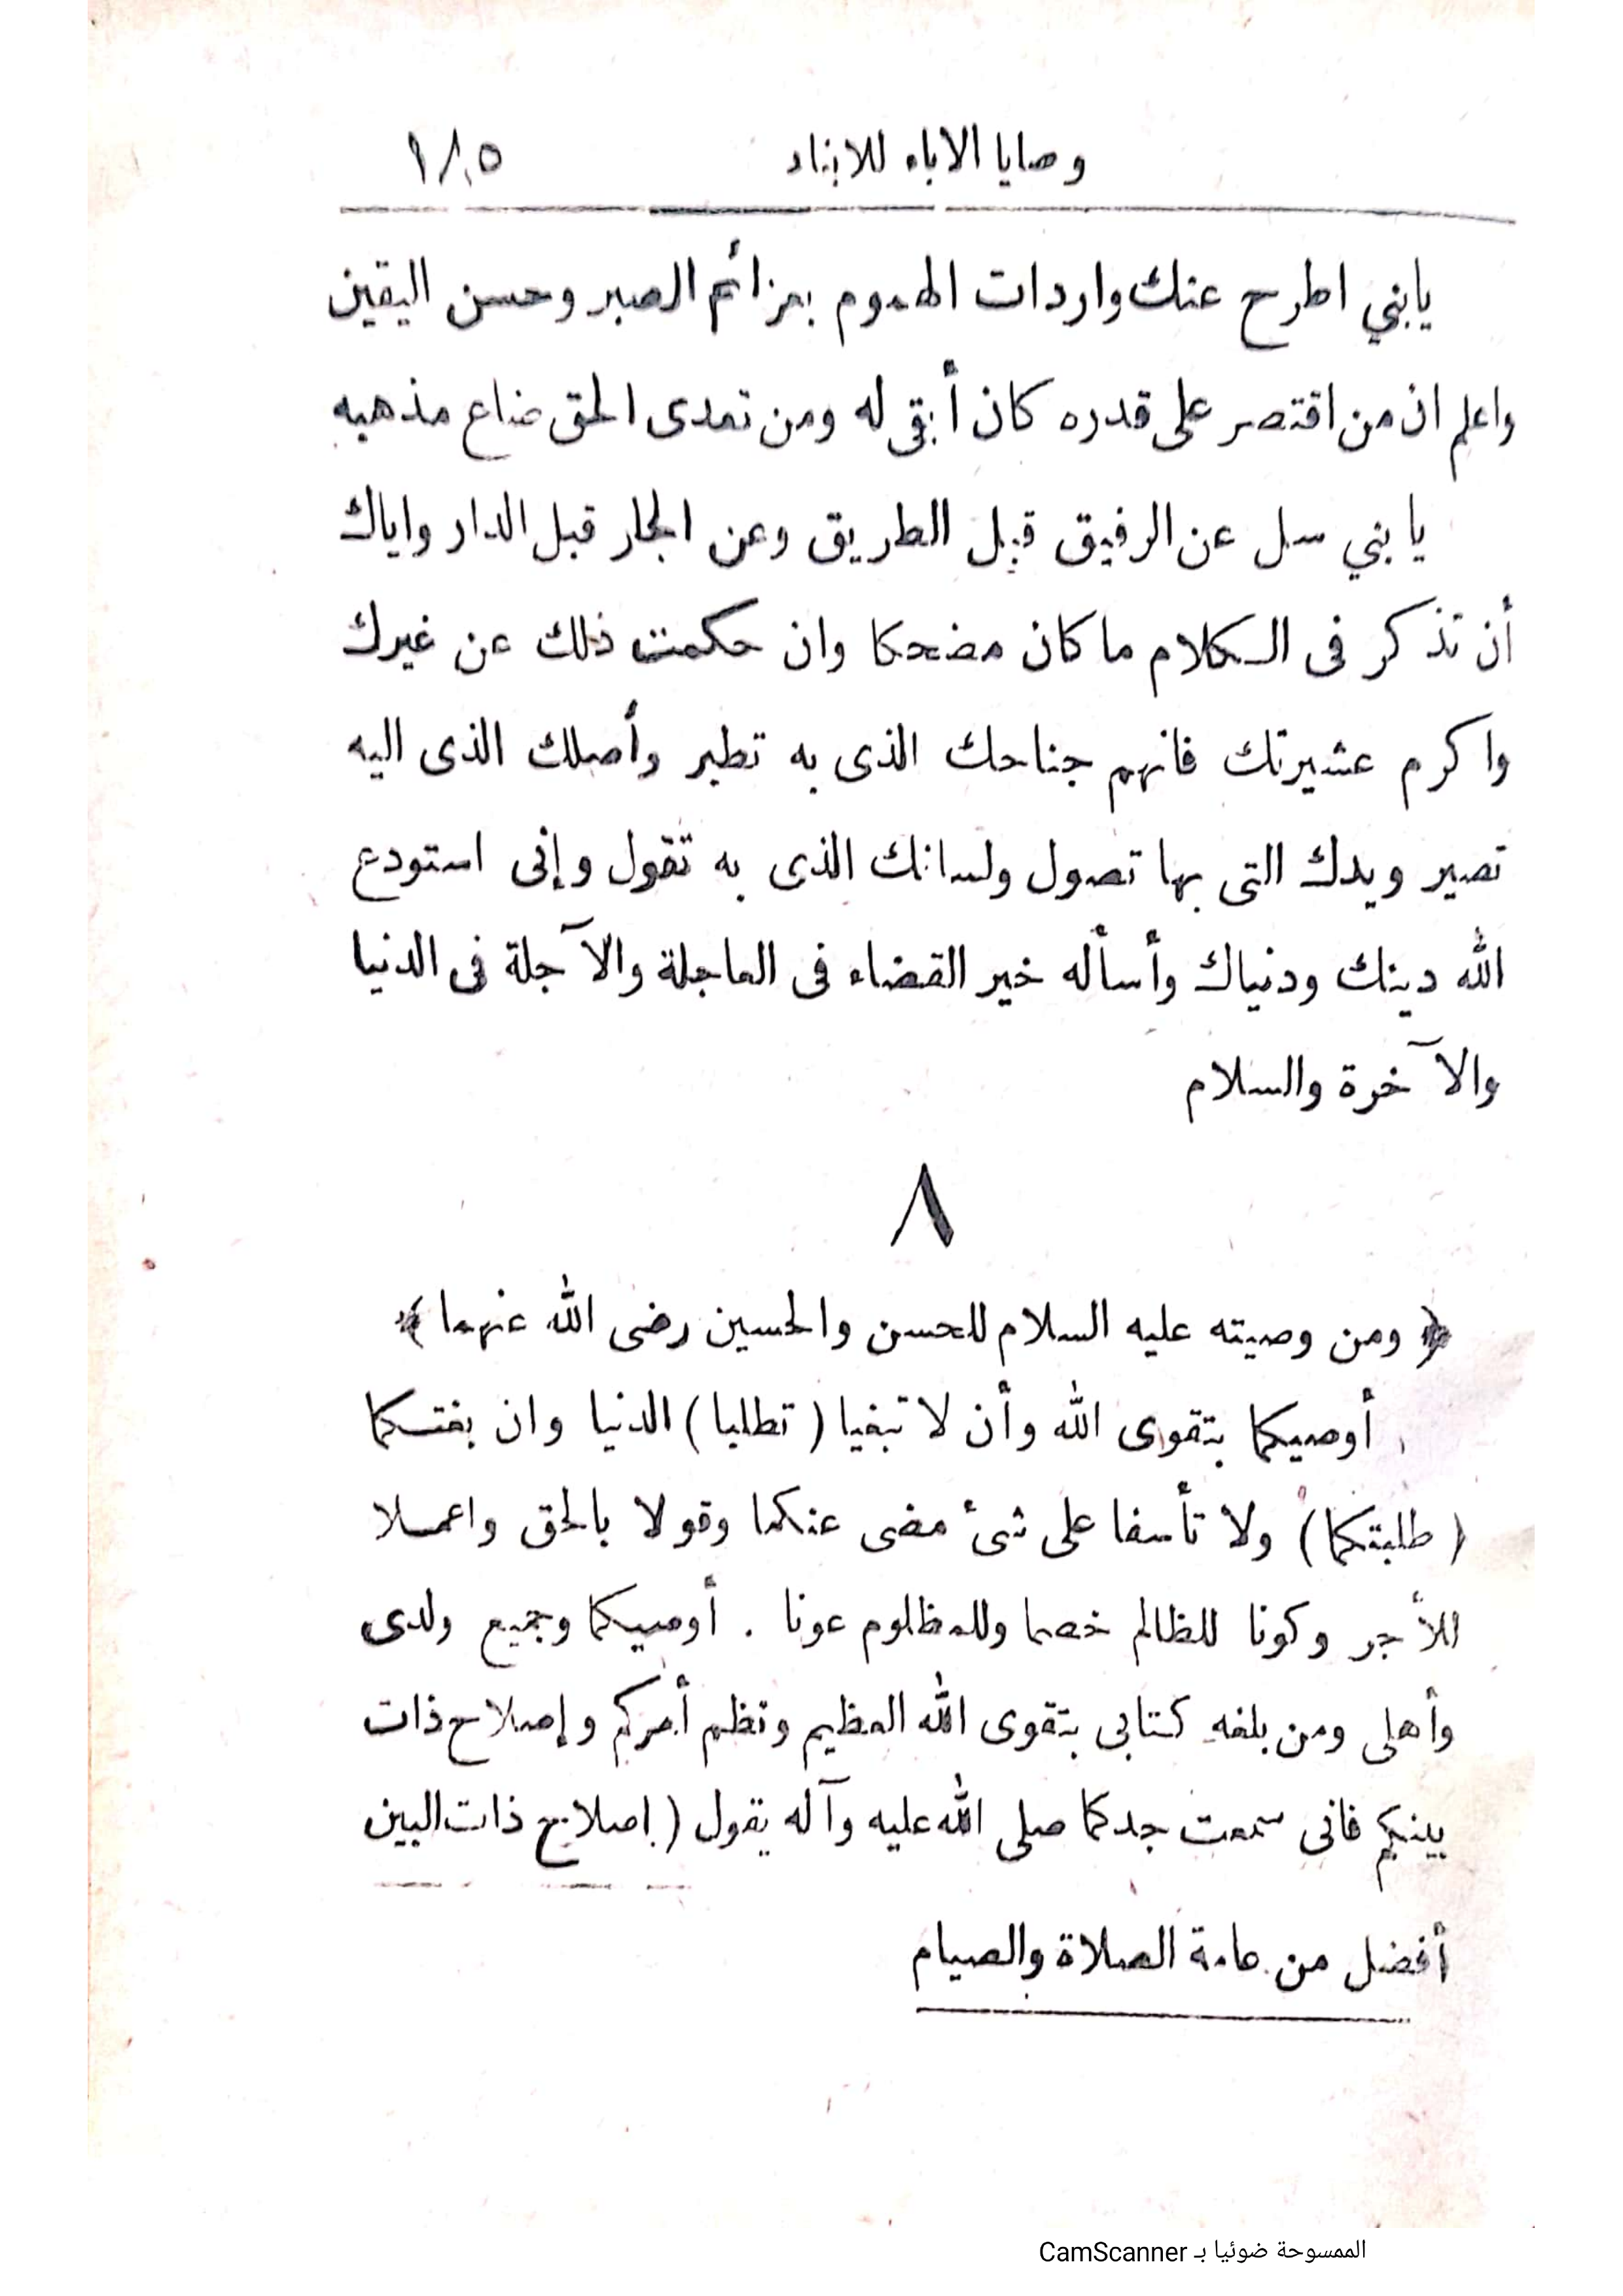 وصايا الاباء للابناء ١٨٥
يابني اطرح عنك واردات الهموم بعزائم الصبر وحسن اليقين
واعلم ان من اقتصر على قدره كان أبقى له ومن تعدى الحق ضاع مذهبه
يا بني سل عن الرفيق قبل الطريق وعن الجار قبل الدار واياك
أن تذكر فى الكلام ما كان مضحكا وان حكمت ذلك عن غيرك
واكرم عشيرتك فانهم جناحك الذى به تطير وأصلك الذى اليه
تصير ويدك التى بها تصول ولسانك الذى به تقول وإنى استودع
الله دينك ودنياك وأسأله خير القضاء فى العاجلة والآجلة فى الدنيا
والآخرة والسلام
٨
﴿ ومن وصيته عليه السلام للحسن والحسين رضى الله عنهما ﴾
أوصيكما بتقوى الله وأن لا تبغيا ( تطلبا ) الدنيا وان بغتكما
( طلبتكما ) ولا تأسفا على شىء مضى عنكما وقولا بالحق واعملا
للأجر وكونا للظالم خصما وللمظلوم عونا . أوصيكما وجميع ولدى
وأهلى ومن بلغه كتابى بتقوى الله العظيم ونظم أمركم وإصلاح ذات
بينكم فانى سمعت جدكما صلى الله عليه وآله يقول ( إصلاح ذات البين
أفضل من عامة الصلاة والصيام
الممسوحة ضوئيا بـ CamScanner